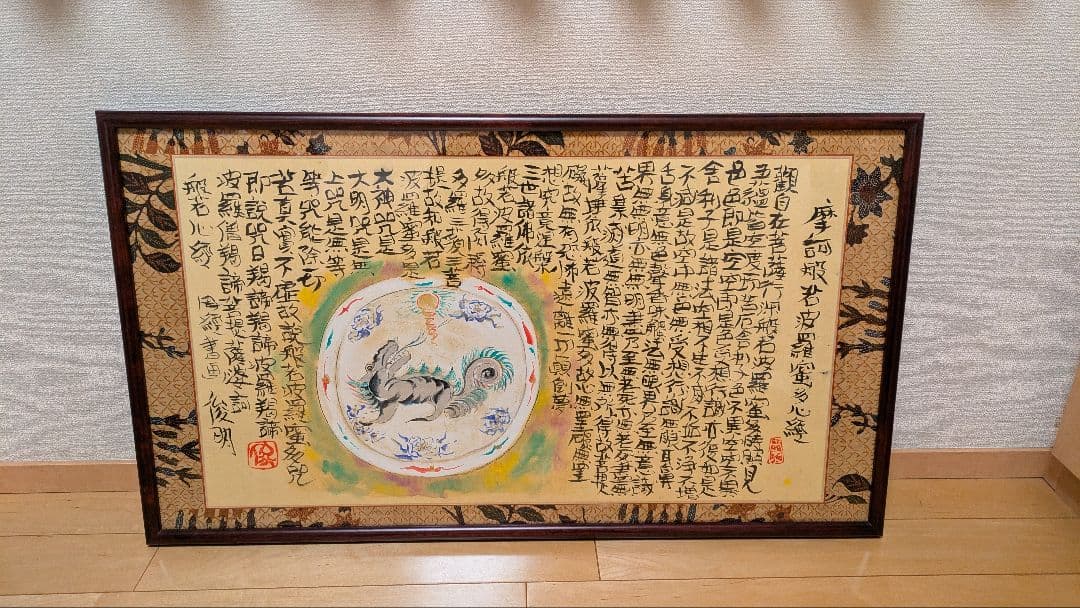 摩訶般若波羅蜜多心經
觀自在菩薩行深般若波羅蜜多時照見
五蘊皆空度一切苦厄舎利子色不異空空不異
色色即是空空即是色受想行識亦復如是
舎利子是諸法空相不生不滅不垢不浄不増
不減是故空中無色無受想行識無眼耳鼻
舌身意無色聲香味觸法無眼界乃至無意識
界無無明亦無無明盡乃至無老死亦無老死盡無
苦集滅道無智亦無得以無所得故菩提
薩埵依般若波羅蜜多故心無罣礙無罣
礙故無有恐怖遠離一切顛倒夢
想究竟涅槃
三世諸佛依
般若波羅蜜
多故得阿耨
多羅三藐三菩
提故知般若
波羅蜜多是
大神咒是
大明咒是無
上咒是無等
等咒能除一切
苦真實不虚故説般若波羅蜜多咒
即説咒曰羯諦羯諦波羅羯諦
波羅僧羯諦菩提薩婆訶
般若心経
俊明